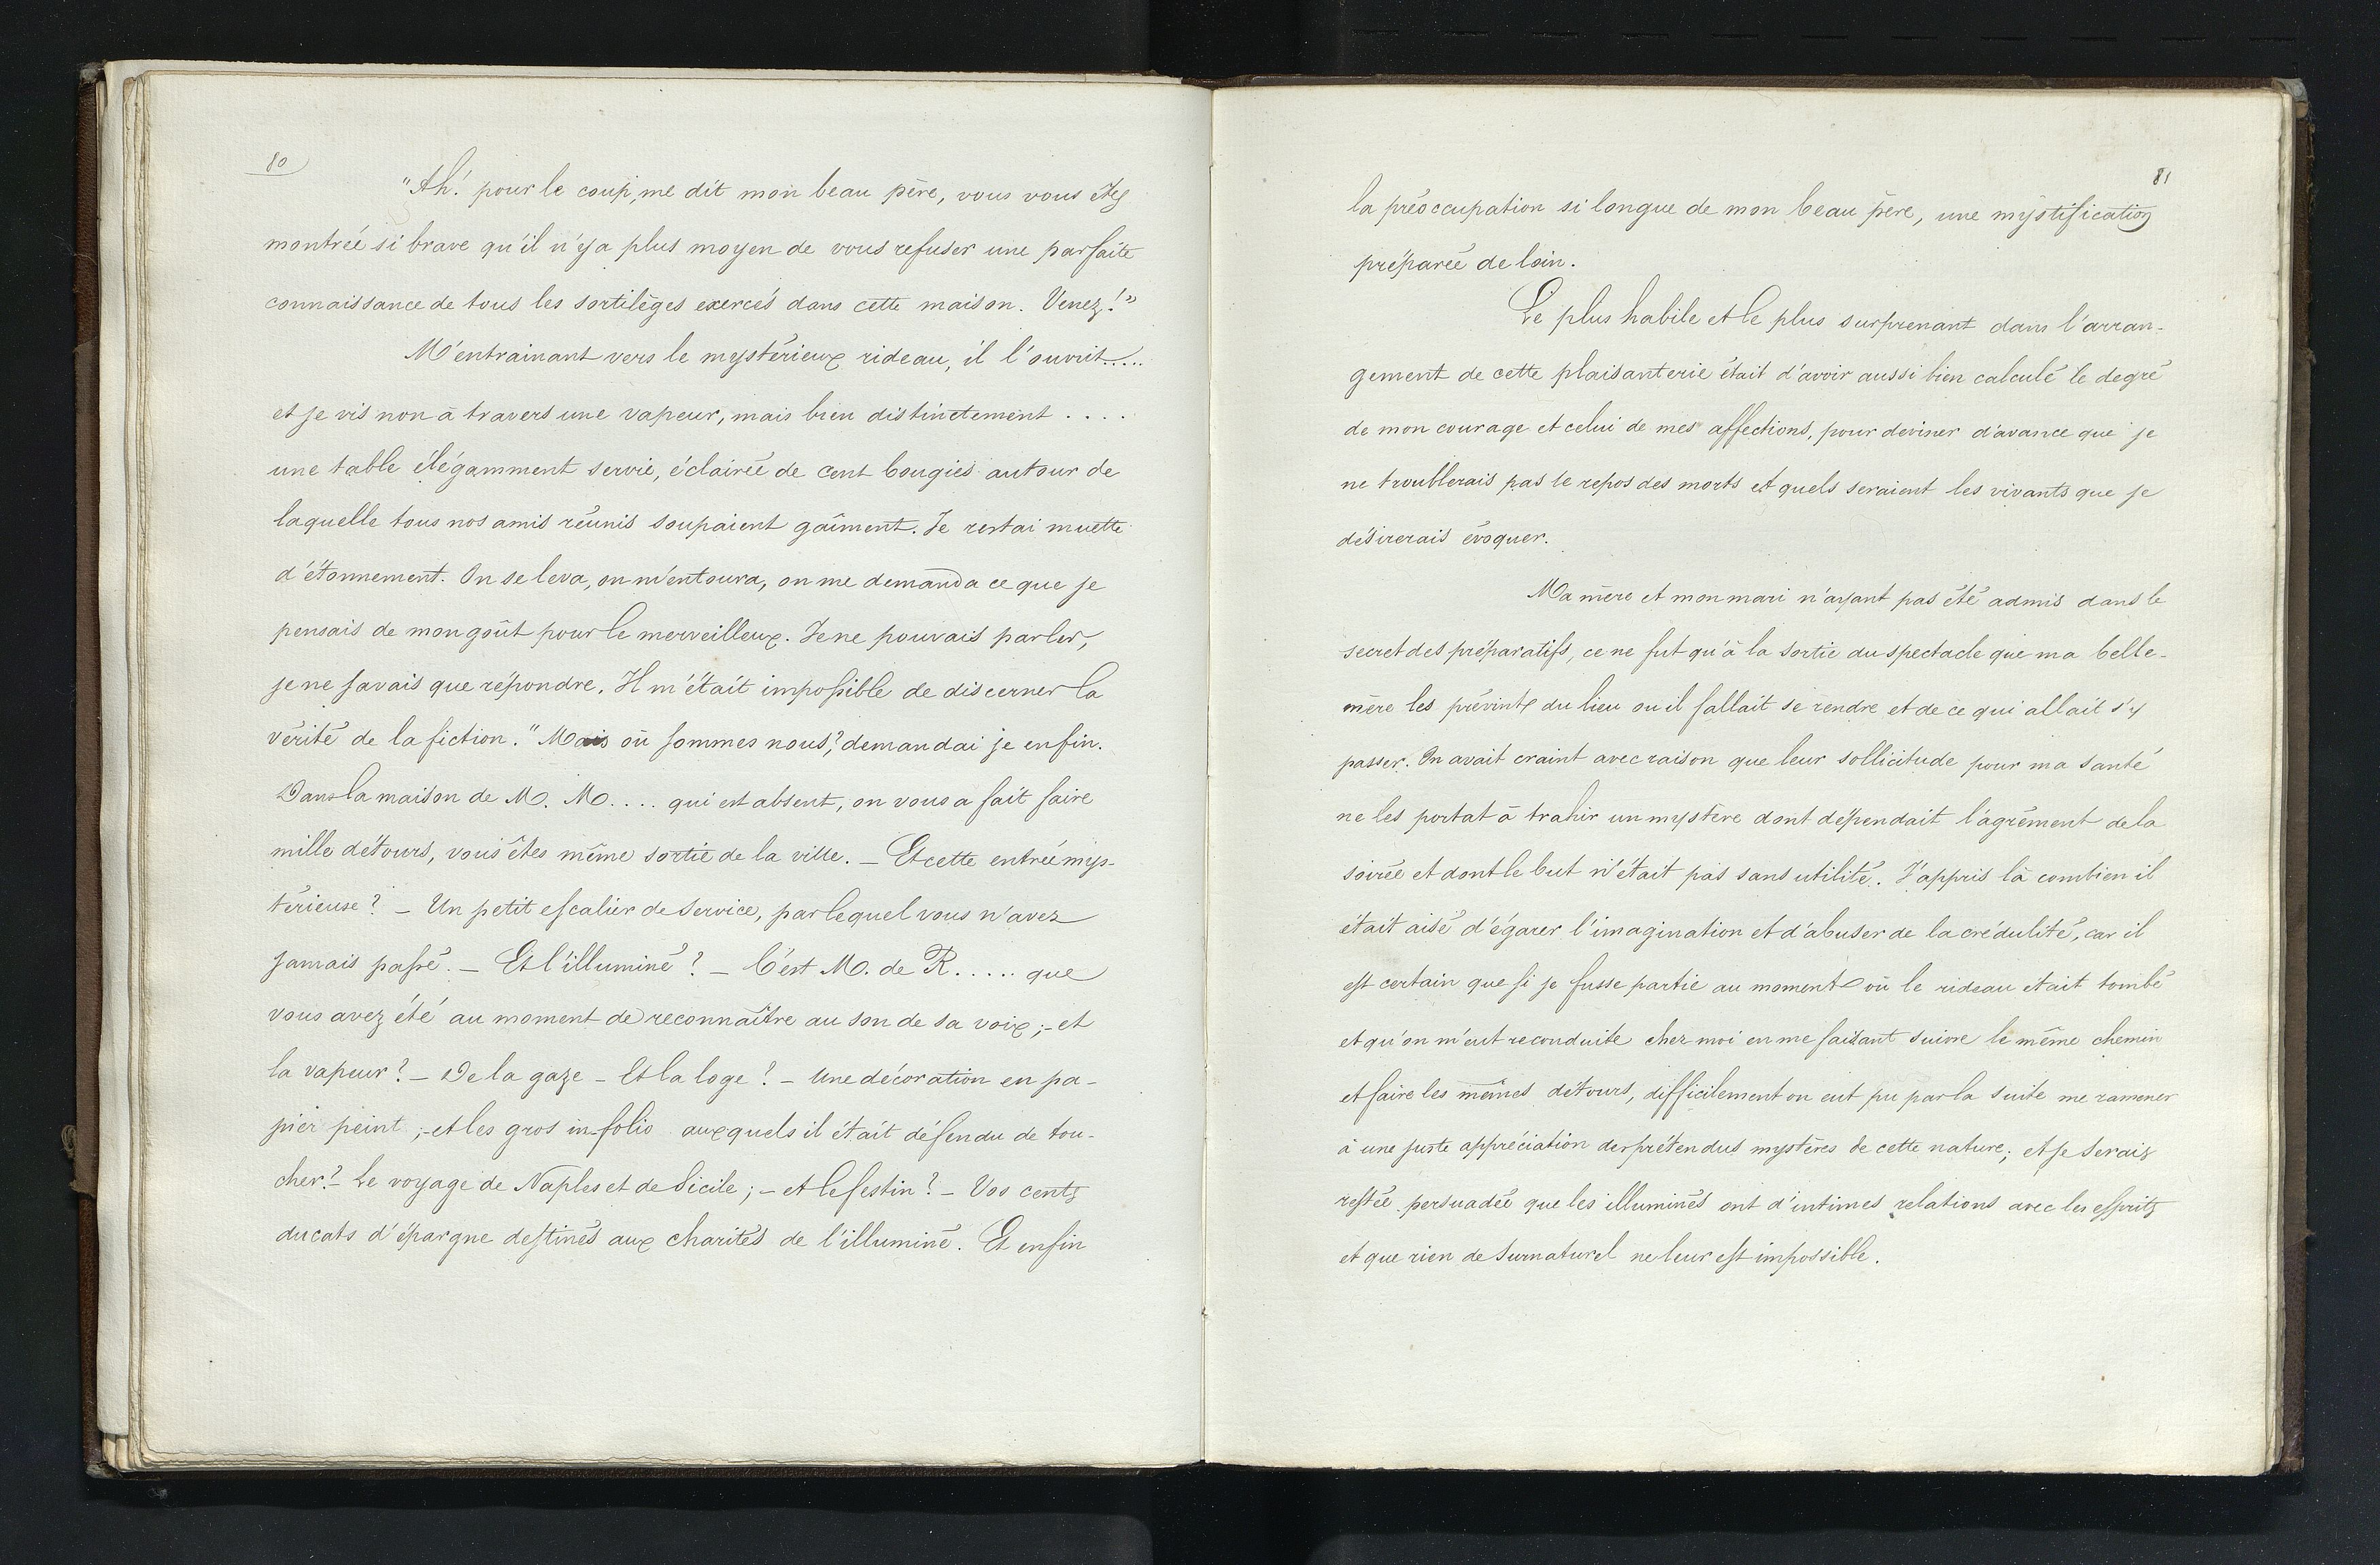 80
"Ah! pour le coup, me dit mon beau père, vous vous êtes
montrée si brave qu'il n'y a plus moyen de vous refuser une parfaite
connaissance de tous les sortilèges exercés dans cette maison. Venez!"
M'entrainant vers le mystérieux rideau, il l'ouvrit.....
et je vis non à travers une vapeur, mais bien distinctement ....
une table élégamment servie, éclairée de cent bougies autour de
laquelle tous nos amis réunis soupaient gaîment. Je restai muette
d'étonnement. On se leva, on m'entoura, on me demanda ce que je
pensais de mon goût pour le merveilleux. Je ne pouvais parler,
je ne savais que répondre. Il m'était impossible de discerner la
vérité de la fiction. "Mais où sommes nous,? demandai je enfin.
Dans la maison de M. M.... qui est absent, on vous a fait faire
mille détours, vous êtes même sortie de la ville. _ Et cette entrée mys-
térieuse? _ Un petit escalier de service, par lequel vous n'avez
jamais passé. _ Et l'illuminé? _ C'est M. de R..... que
vous avez été au moment de reconnaître au son de sa voix; - et
la vapeur? _ De la gaze _ Et la loge? _ Une décoration en pa-
pier peint; - et les gros in-folio auxquels il était défendu de tou-
cher? _ Le voyage de Naples et de Sicile; - et le festin? _ Vos cents
ducats d'épargne destinés aux charités de l'illuminé. Et enfin
81
la préoccupation si longue de mon beau père, une mystification
préparée de loin.
Le plus habile et le plus surprenant dans l'arran-
gement de cette plaisanterie était d'avoir aussi bien calculé le degré
de mon courage et celui de mes affections, pour deviner d'avance que je
ne troublerais pas le repos des morts et quels seraient les vivants que je
désirerais évoquer.
Ma mère et mon mari n'ayant pas été admis dans le
secret des préparatifs, ce ne fut qu'à la sortie du spectacle que ma belle-
mère les prévint du lieu ou il fallait se rendre et de ce qui allait s'y
passer. On avait craint avec raison que leur sollicitude pour ma santé
ne les portat à trahir un mystère dont dépendait l'agrément de la
soirée et dont le but n'était pas sans utilité. J'appris là combien il
était aisé d'égarer l'imagination et d'abuser de la crédulité, car il
est certain que si je fusse partie au moment où le rideau était tombé
et qu'on m'eut reconduite chez moi en me faisant suivre le même chemin
et faire les mêmes détours, difficilement on eut pu par la suite me ramener
à une juste appréciation des prétendus mystères de cette nature; et je serais
restée persuadée que les illuminés ont d'intimes relations avec les esprits
et que rien de surnaturel ne leur est impossible.